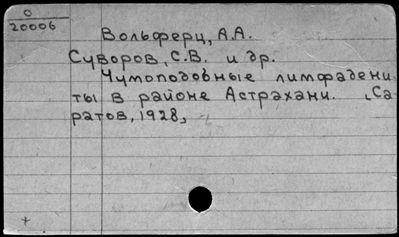 0
20006
Вольферц, А.А.
Суворов, С.В. и др.
Чумоподобные лимфадени
ты в районе Астрахани. Са
ратов, 1928,